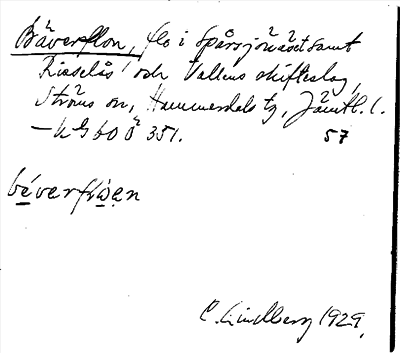 Bäverflon, flo i Spårsjönäset samt
Risselås och Vallens skifteslag,
Ströms sn, Hammerdals tg, Jämtl. l.
— k G b o Ö 351. 57
bè̱verflω̱en
C. Lindberg 1929.